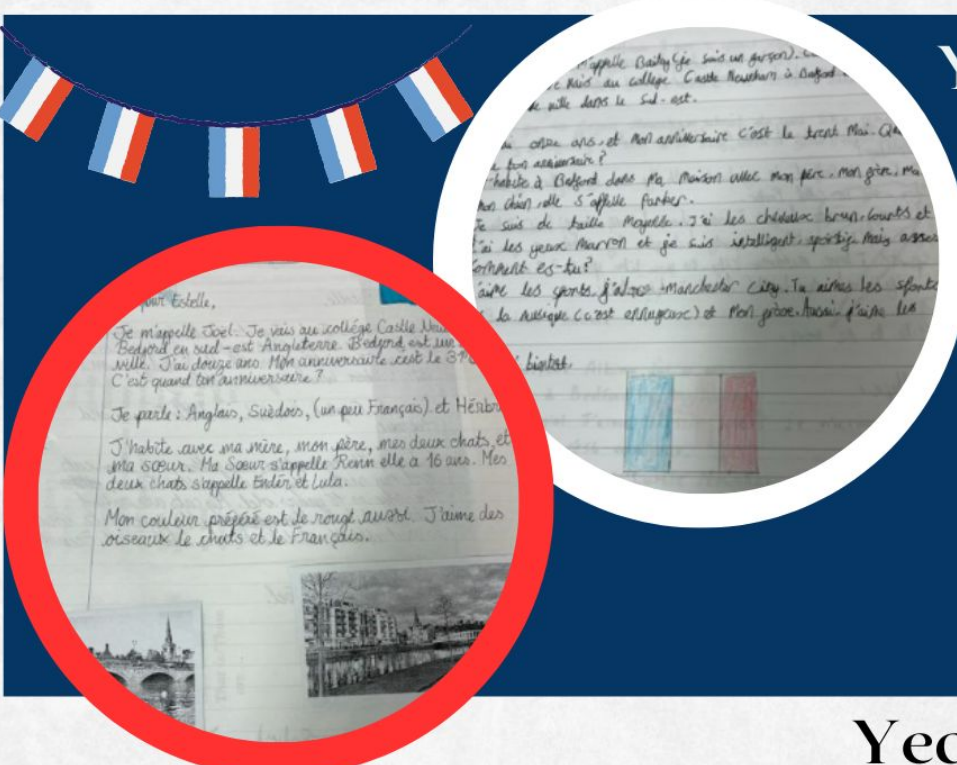 Y
m'appelle Bailey (je suis un garçon).
vais au collège Castle Newnham à Bedford
ville dans le Sud-est.
onze ans, et mon anniversaire c'est le trent Mai.
ton anniversaire?
habite à Bedford dans ma maison avec mon père, mon
mon chien, elle s'appelle Parker.
Je suis de taille J'ai les brun, courts et
J'ai les yeux marron et je suis intelligent, sportif mais
Comment es-tu?
J'aime les sports. j'adore Manchester City. Tu aimes les sports
la et mon Aussi j'aime les
bientot,
Estelle,
Je m'appelle Joel. Je vais au collège Castle
Bedford en sud-est Angleterre. Bedford est une
ville. J'ai douze ans. Mon anniversaire c'est le
C'est quand ton anniversaire?
Je parle: Anglais, Suèdois, (un peu Français) et
J'habite avec ma mère, mon père, mes deux chats, et
ma sœur. Ma Sœur s'appelle elle a 16 ans. Mes
deux chats s'appelle et Lula.
Mon couleur préféré est le rouge aussi. J'aime des
oiseaux le chats et le Français.
Yea